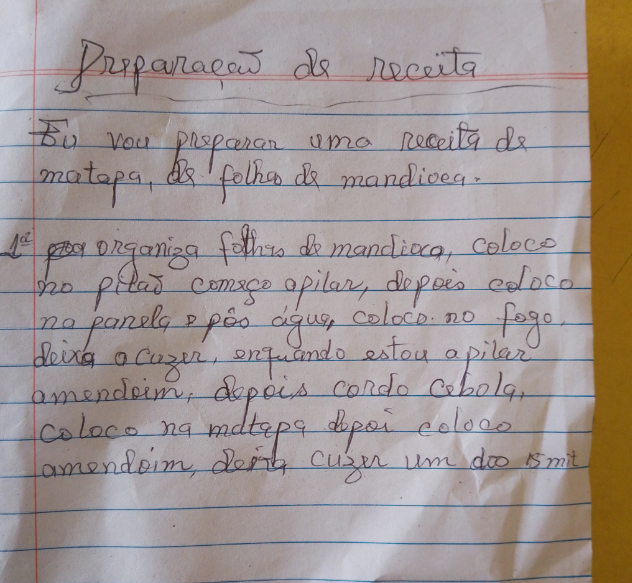 Preparação de receita
Eu vou preparar uma receita de
matapa, de folhas de mandioca.
1ª organiza folhas de mandioca, coloco
no pilão começo apilar, depois coloco
na panela e pôo água, coloco no fogo,
deixa o cuzer, enquando estou a pilar
amendoim, depois cordo cebola,
coloco na matapa depoi coloco
amendoim, deixa cuzer um doo 15 mit